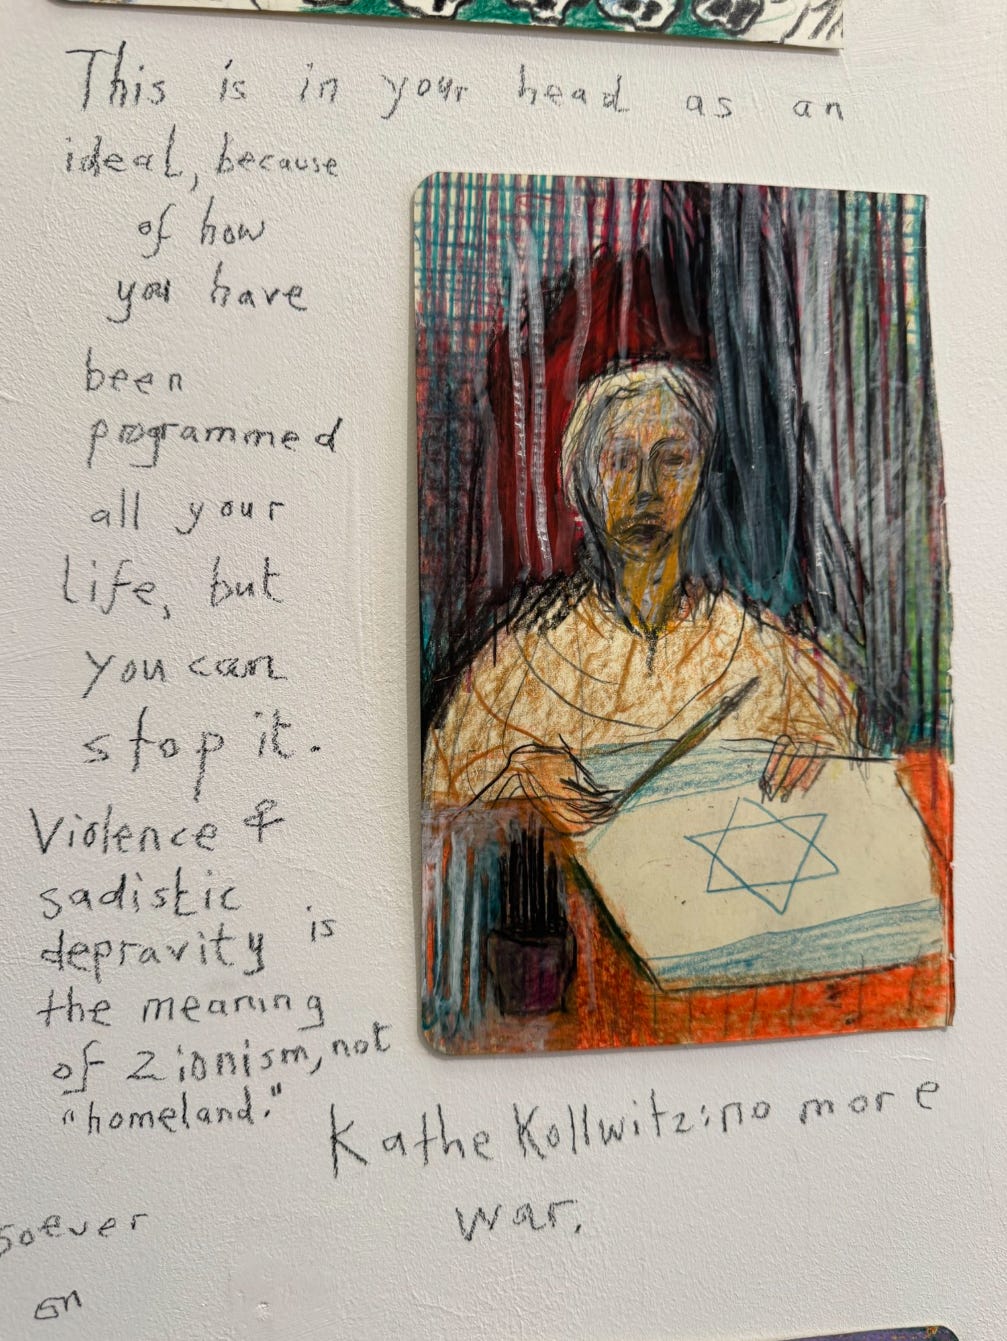 This is in your head as an
ideal, because
of how
you have
been
programmed
all your
life, but
you can
stop it.
Violence &
sadistic
depravity is
the meaning
of Zionism, not
"homeland."
Kathe Kollwitz: no more
war.
soever